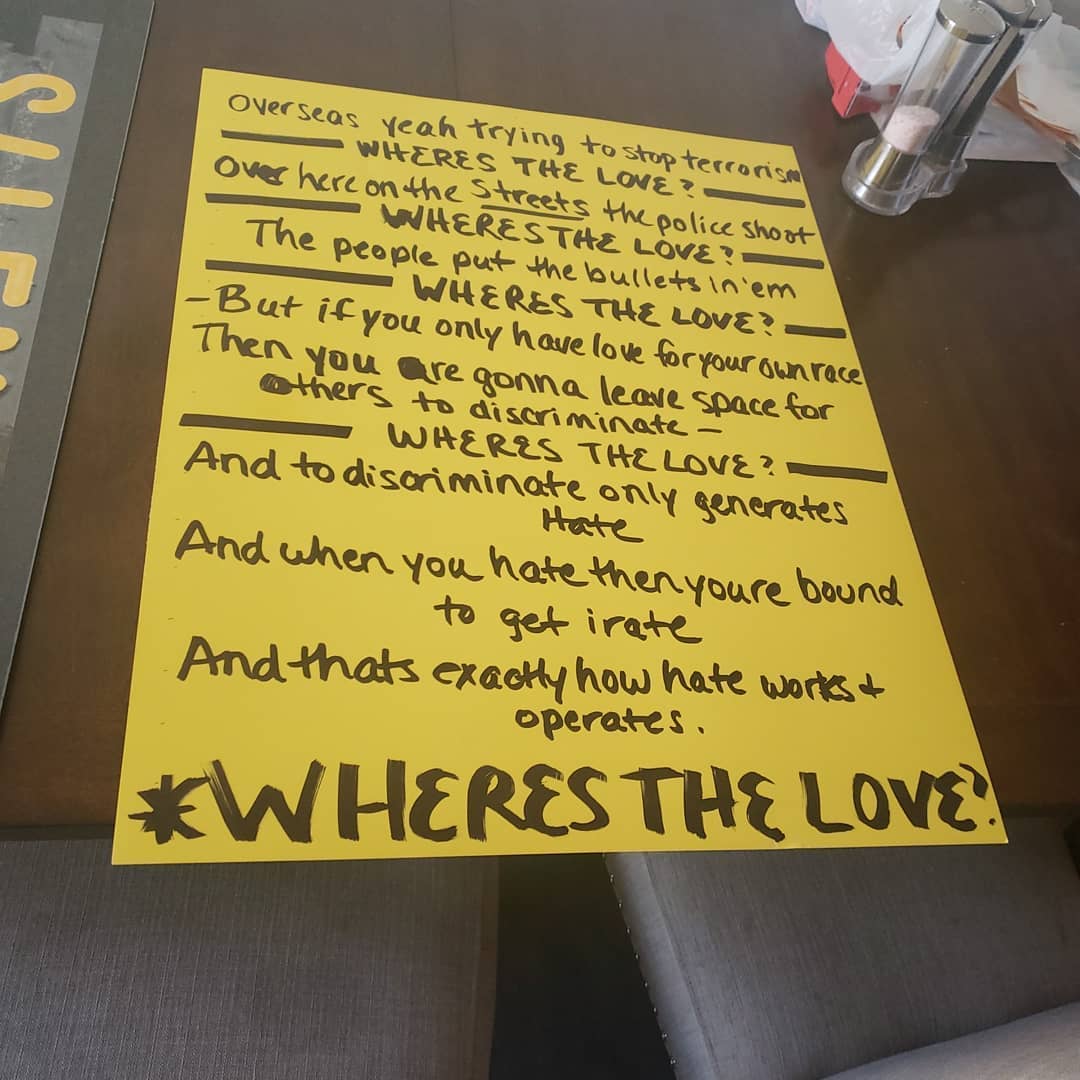 Overseas yeah trying to stop terrorism
WHERES THE LOVE?
Over here on the Streets the police shoot
WHERES THE LOVE?
The people put the bullets in 'em
WHERES THE LOVE?
- But if you only have love for your own race
Then you are gonna leave space for
others to discriminate -
WHERES THE LOVE?
And to discriminate only generates
Hate
And when you hate then youre bound
to get irate
And thats exactly how hate works +
operates.
*WHERES THE LOVE?